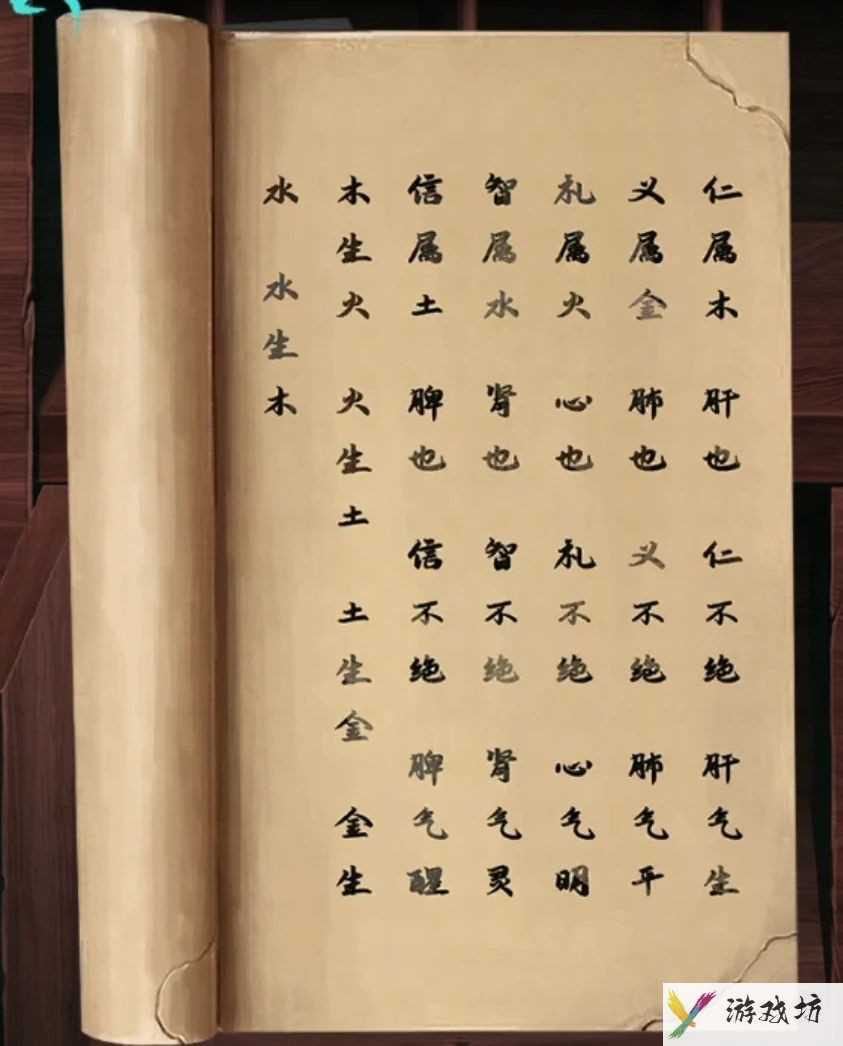 仁属木 肝也 仁不绝 肝气生
义属金 肺也 义不绝 肺气平
礼属火 心也 礼不绝 心气明
智属水 肾也 智不绝 肾气灵
信属土 脾也 信不绝 脾气醒
木生火 火生土 土生金 金生
水 水生木
游戏坊